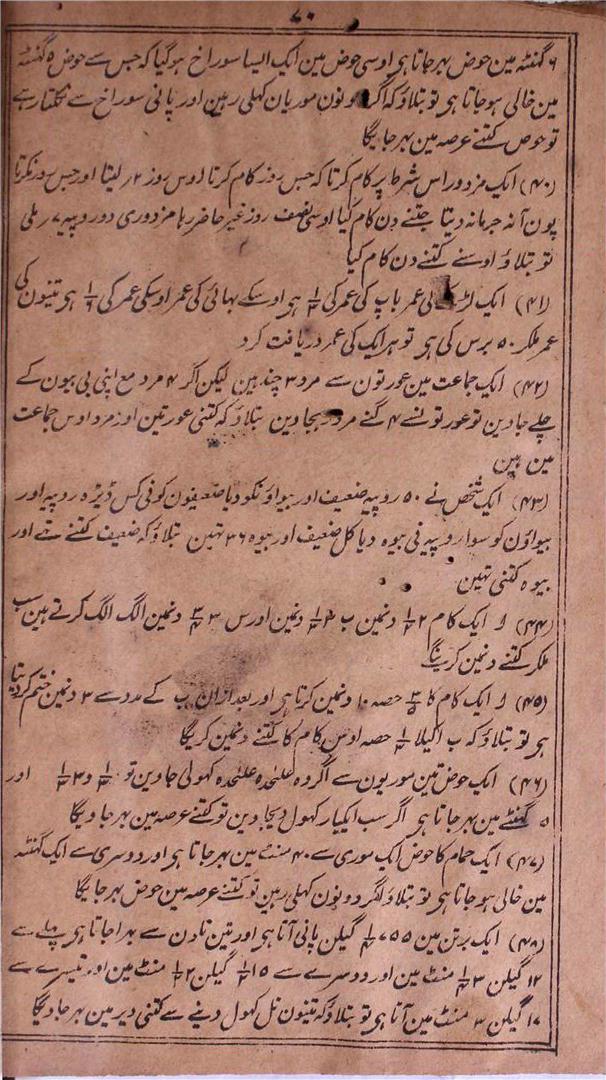 ۷۰
۶ گھنٹہ مین حوض بھر جاتا ہی اوسی حوض مین ایک ایسا سوراخ ہوگیا کہ جس سے حوض ۵ گھنٹہ
مین خالی ہو جاتا ہی تو بتلاؤ کہ اگر دونون موریان کھلی رہین اور پانی سوراخ سے نکلتا رہے
تو حوض کتنے عرصہ مین بھر جائیگا
(۴۰) ایک مزدور اس شرط پر کام کرتا کہ جس روز کام کرتا اوس روز ۲؍ لیتا اور جس روز نکرتا
پون آنہ جرمانہ دیتا جتنے دن کام کیا اوسی نصف روز غیر حاضر رہا مزدوری دو روپیہ ۷؍ ملی
تو بتلاؤ اوسنے کتنے دن کام کیا
(۴۱) ایک لڑکے کی عمر باپ کی عمر کی ہی اوسکے بھائی کی عمر اوسکی عمر کی ہی تینون کی
عمر ملکر ۵۰ برس کی ہی تو ہر ایک کی عمر دریافت کرو
(۴۲) ایک جماعت مین عورتون سے مرد ۳ چند ہین لیکن اگر ۴ مرد مع اپنی بی بیون کے
چلے جاوین تو عورتونسے ۴ گنے مرد رہجاوین بتلاؤ کہ کتنی عورتین اور مرد اوس جماعت
مین ہین
(۴۳) ایک شخص نے ۵۰ روپیہ ضعیف اور بیواؤنکو دیا ضعیفون کو فی کس ڈیڑہ روپیہ اور
بیواؤن کو سوا روپیہ فی بیوہ دیا کل ضعیف اور بیوہ ۳۶ تہین بتلاؤ کہ ضعیف کتنے تھے اور
بیوہ کتنی تہین
(۴۴) ا ایک کام ۲ ۱/۲ دنمین ب دنمین اور س ۳ ۳/۴ دنمین الگ الگ کرتے ہین سب
ملکر کتنے دنمین کرینگے
(۴۵) ا ایک کام کا ۳/۵ حصہ ۱۰ دنمین کرتا ہی اور بعد ازان ب کے مدد سے ۳ دنمین ختم کر دیتا
ہی تو بتلاؤ کہ ب اکیلا حصہ اوس کام کا کتنے دنمین کریگا
(۴۶) ایک حوض تین موریون سے اگر وہ علیحدہ علیحدہ کھولی جاوین تو و اور
۵ گھنٹے مین بھر جاتا ہی اگر سب ایکبار کھول دیجاوین تو کتنے عرصہ مین بھر جاویگا
(۴۷) ایک حمام کا حوض ایک موری سے ۴۰ منٹ مین بھر جاتا ہی اور دوسری سے ایک گھنٹہ
مین خالی ہو جاتا ہی تو بتلاؤ اگر دونون کھلی رہین تو کتنے عرصہ مین حوض بھر جائیگا
(۴۸) ایک برتن مین گیلن پانی آتا ہی اور تین نلون سے بھرا جاتا ہی پہلے سے
۱۲ گیلن ۳ ۱/۴ منٹ مین اور دوسرے سے گیلن ۲ ۱/۲ منٹ مین اور تیسرے سے
۱۷ گیلن ۳ منٹ مین آتا ہی تو بتلاؤ کہ تینون نل کھول دینے سے کتنی دیر مین بھر جاویگا